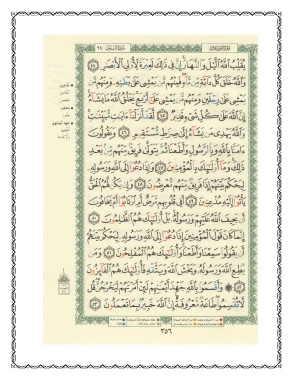 يُقَلِّبُ ٱللَّهُ ٱلَّيۡلَ وَٱلنَّهَارَۚ إِنَّ فِي ذَٰلِكَ لَعِبۡرَةٗ لِّأُوْلِي ٱلۡأَبۡصَٰرِ ٤٤
وَٱللَّهُ خَلَقَ كُلَّ دَآبَّةٖ مِّن مَّآءٖۖ فَمِنۡهُم مَّن يَمۡشِي عَلَىٰ بَطۡنِهِۦ وَمِنۡهُم مَّن
يَمۡشِي عَلَىٰ رِجۡلَيۡنِ وَمِنۡهُم مَّن يَمۡشِي عَلَىٰٓ أَرۡبَعٖۚ يَخۡلُقُ ٱللَّهُ مَا يَشَآءُۚ
إِنَّ ٱللَّهَ عَلَىٰ كُلِّ شَيۡءٖ قَدِيرٞ ٤٥ لَّقَدۡ أَنزَلۡنَآ ءَايَٰتٖ مُّبَيِّنَٰتٖۚ
وَٱللَّهُ يَهۡدِي مَن يَشَآءُ إِلَىٰ صِرَٰطٖ مُّسۡتَقِيمٖ ٤٦ وَيَقُولُونَ
ءَامَنَّا بِٱللَّهِ وَبِٱلرَّسُولِ وَأَطَعۡنَا ثُمَّ يَتَوَلَّىٰ فَرِيقٞ مِّنۡهُم مِّنۢ بَعۡدِ
ذَٰلِكَۚ وَمَآ أُوْلَٰٓئِكَ بِٱلۡمُؤۡمِنِينَ ٤٧ وَإِذَا دُعُوٓاْ إِلَى ٱللَّهِ وَرَسُولِهِۦ
لِيَحۡكُمَ بَيۡنَهُمۡ إِذَا فَرِيقٞ مِّنۡهُم مُّعۡرِضُونَ ٤٨ وَإِن يَكُن لَّهُمُ ٱلۡحَقُّ
يَأۡتُوٓاْ إِلَيۡهِ مُذۡعِنِينَ ٤٩ أَفِي قُلُوبِهِم مَّرَضٌ أَمِ ٱرۡتَابُوٓاْ أَمۡ يَخَافُونَ
أَن يَحِيفَ ٱللَّهُ عَلَيۡهِمۡ وَرَسُولُهُۥۚ بَلۡ أُوْلَٰٓئِكَ هُمُ ٱلظَّٰلِمُونَ ٥٠
إِنَّمَا كَانَ قَوۡلَ ٱلۡمُؤۡمِنِينَ إِذَا دُعُوٓاْ إِلَى ٱللَّهِ وَرَسُولِهِۦ لِيَحۡكُمَ بَيۡنَهُمۡ
أَن يَقُولُواْ سَمِعۡنَا وَأَطَعۡنَاۚ وَأُوْلَٰٓئِكَ هُمُ ٱلۡمُفۡلِحُونَ ٥١ وَمَن
يُطِعِ ٱللَّهَ وَرَسُولَهُۥ وَيَخۡشَ ٱللَّهَ وَيَتَّقۡهِ فَأُوْلَٰٓئِكَ هُمُ ٱلۡفَآئِزُونَ
٥٢ ۞ وَأَقۡسَمُواْ بِٱللَّهِ جَهۡدَ أَيۡمَٰنِهِمۡ لَئِنۡ أَمَرۡتَهُمۡ لَيَخۡرُجُنَّۖ قُل
لَّا تُقۡسِمُواْۖ طَاعَةٞ مَّعۡرُوفَةٌۚ إِنَّ ٱللَّهَ خَبِيرُۢ بِمَا تَعۡمَلُونَ ٥٣
٣٥٦